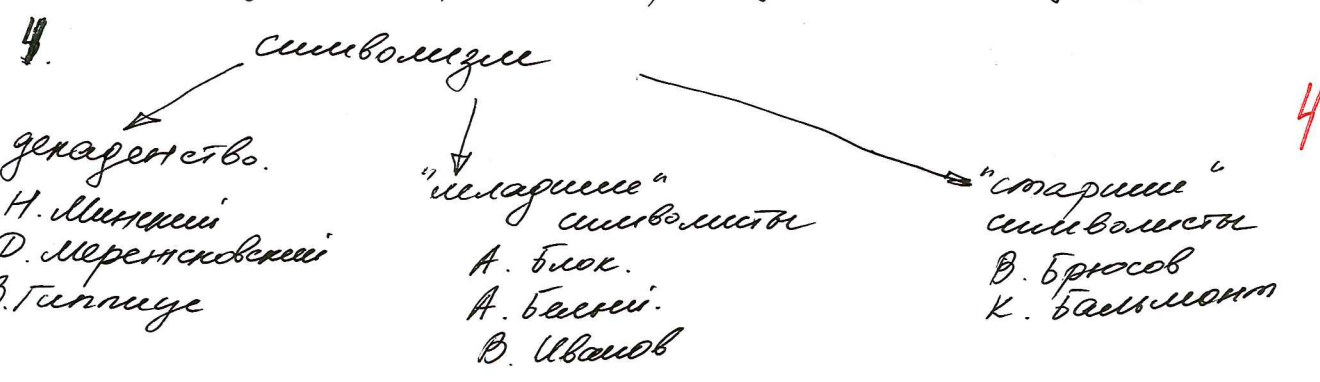 4.
символизм
декаденство.
Н. Минский
Д. Мережковский
З. Гиппиус
"младшие"
символисты
А. Блок.
А. Белый.
В. Иванов
"старшие"
символисты
В. Брюсов
К. Бальмонт
4